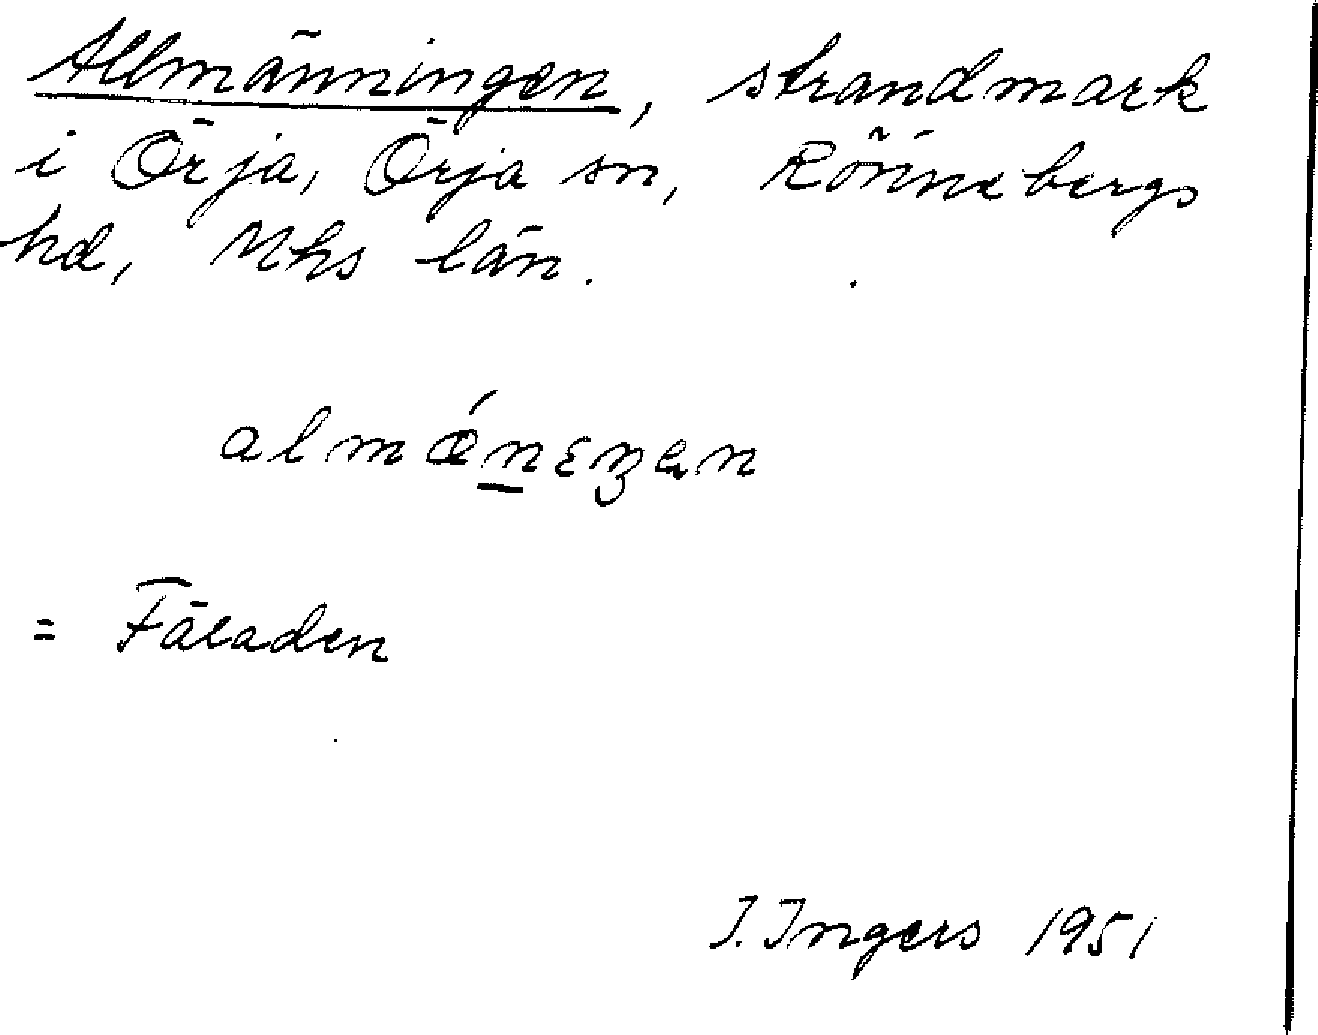 Allmänningen, strandmark
i Örja, Örja sn, Rönnebergs
hd, Mhs län.
almǽnɛŋən
= Fäladen
I. Ingers 1951